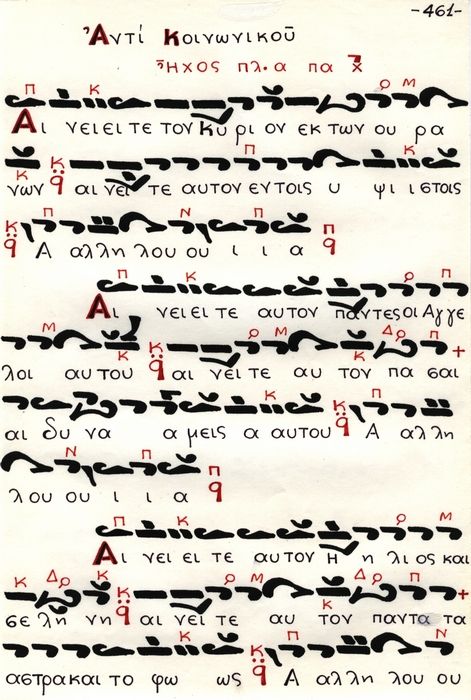 -461-
Ἀντί Κοινωνικοῦ
Ἦχος πλ.α πα
Αι νειει τε τον Κυ ρι ον εκ των ου ρα
νων αι νει τε αυτον εν τοις υ ψι ι στοις
Α αλλη λου ου ι ι α
Αι νειει τε αυτον παντες οι Αγγε
λοι αυτου αι νει τε αυ τον πα σαι
αι δυ να α μεις α αυτου Α αλλη
λου ου ι ι α
Αι νει ει τε αυτον η η λιος και
σε λη νη αι νει τε αυ τον παντα τα
αστρα και το φω ως Α αλλη λου ου